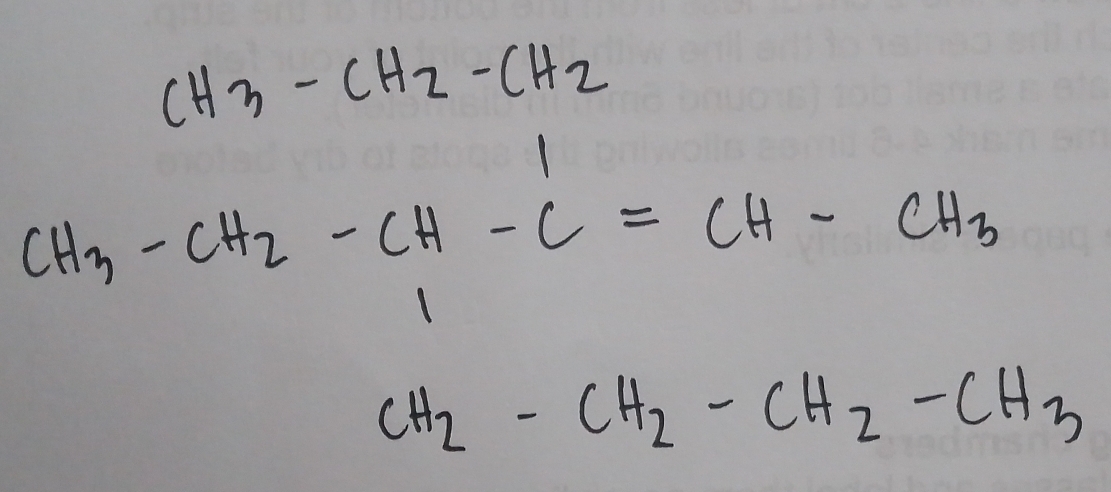 CH3 - CH2 - CH2
|
CH3 - CH2 - CH - C = CH - CH3
|
CH2 - CH2 - CH2 - CH3